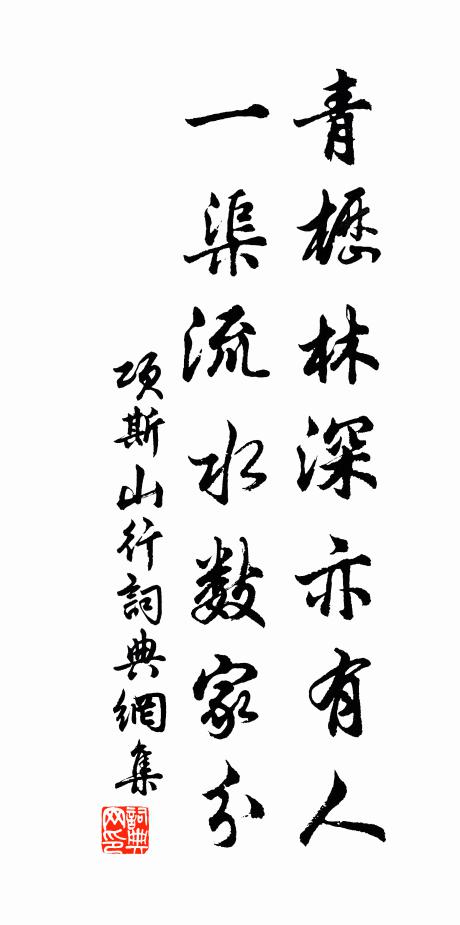 青櫪林深亦有人
一渠流水數家分
項斯山行詞典網集
詞典
网印